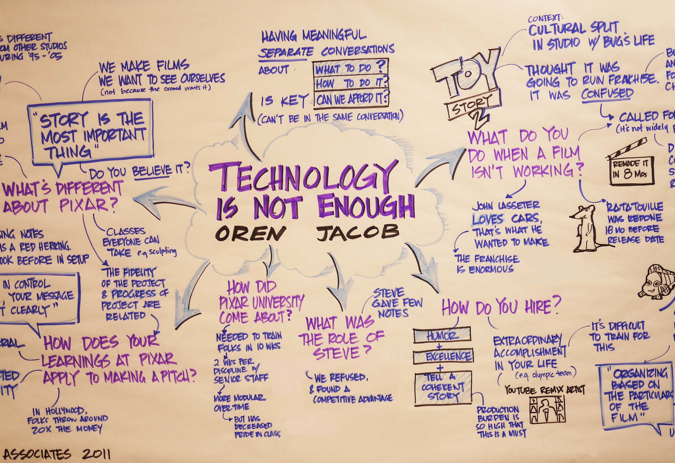 TECHNOLOGY
IS NOT ENOUGH
OREN JACOB
HAVING MEANINGFUL
SEPARATE CONVERSATIONS
ABOUT
WHAT TO DO?
HOW TO DO IT?
CAN WE AFFORD IT?
IS KEY
(CAN'T BE IN THE SAME CONVERSATION)
S DIFFERENT
OM OTHER STUDIOS
URING '95-'05
WE MAKE FILMS
WE WANT TO SEE OURSELVES
(not because the crowd wants it)
"STORY IS THE
MOST IMPORTANT
THING"
DO YOU BELIEVE IT?
WHAT'S DIFFERENT
ABOUT PIXAR?
CLASSES
EVERYONE CAN
TAKE e.g. sculpting
THE FIDELITY
OF THE PROJECT
& PROGRESS OF
PROJECT ARE
RELATED
ING NOTES
IS A RED HERRING.
OOK BEFORE IN SETUP
IN CONTROL
YOUR MESSAGE
Y CLEARLY"
HOW DOES YOUR
LEARNINGS AT PIXAR
APPLY TO MAKING A PITCH?
IN HOLLYWOOD,
FOLKS THROW AROUND
20X THE MONEY
ASSOCIATES 2011
HOW DID
PIXAR UNIVERSITY
COME ABOUT?
NEEDED TO TRAIN
FOLKS IN 10 WKS
2 WKS PER
DISCIPLINE w/
SENIOR STAFF
MORE MODULAR
OVER TIME
BUT HAS
DECREASED
PRIDE IN CLASS
WHAT WAS
THE ROLE OF
STEVE?
STEVE
GAVE FEW
NOTES
WE REFUSED,
& FOUND A
COMPETITIVE ADVANTAGE
HOW DO YOU HIRE?
HUMOR
+
EXCELLENCE
+
TELL A
COHERENT
STORY
EXTRAORDINARY
ACCOMPLISHMENT
IN YOUR LIFE
(e.g. olympic team)
YOUTUBE REMIX ARTIST
PRODUCTION
BURDEN IS
SO HIGH THAT
THIS IS A MUST
IT'S DIFFICULT
TO TRAIN FOR
THIS
"ORGANIZING
BIASED ON
THE PARTICULARS
OF THE
FILM"
TOY
STORY
2
CONTEXT:
CULTURAL SPLIT
IN STUDIO w/ BUG'S LIFE
THOUGHT IT WAS
GOING TO RUN FRACHISE.
IT WAS CONFUSED
WHAT DO YOU
DO WHEN A FILM
ISN'T WORKING?
CALLED FO
(It's not widely
REMADE IT
IN 8 MOS
JOHN LASSETER
LOVES CARS,
THAT'S WHAT HE
WANTED TO MAKE
THE FRANCHISE
IS ENORMOUS
RATATOUILLE
WAS REDONE
18 MO BEFORE
RELEASE DATE